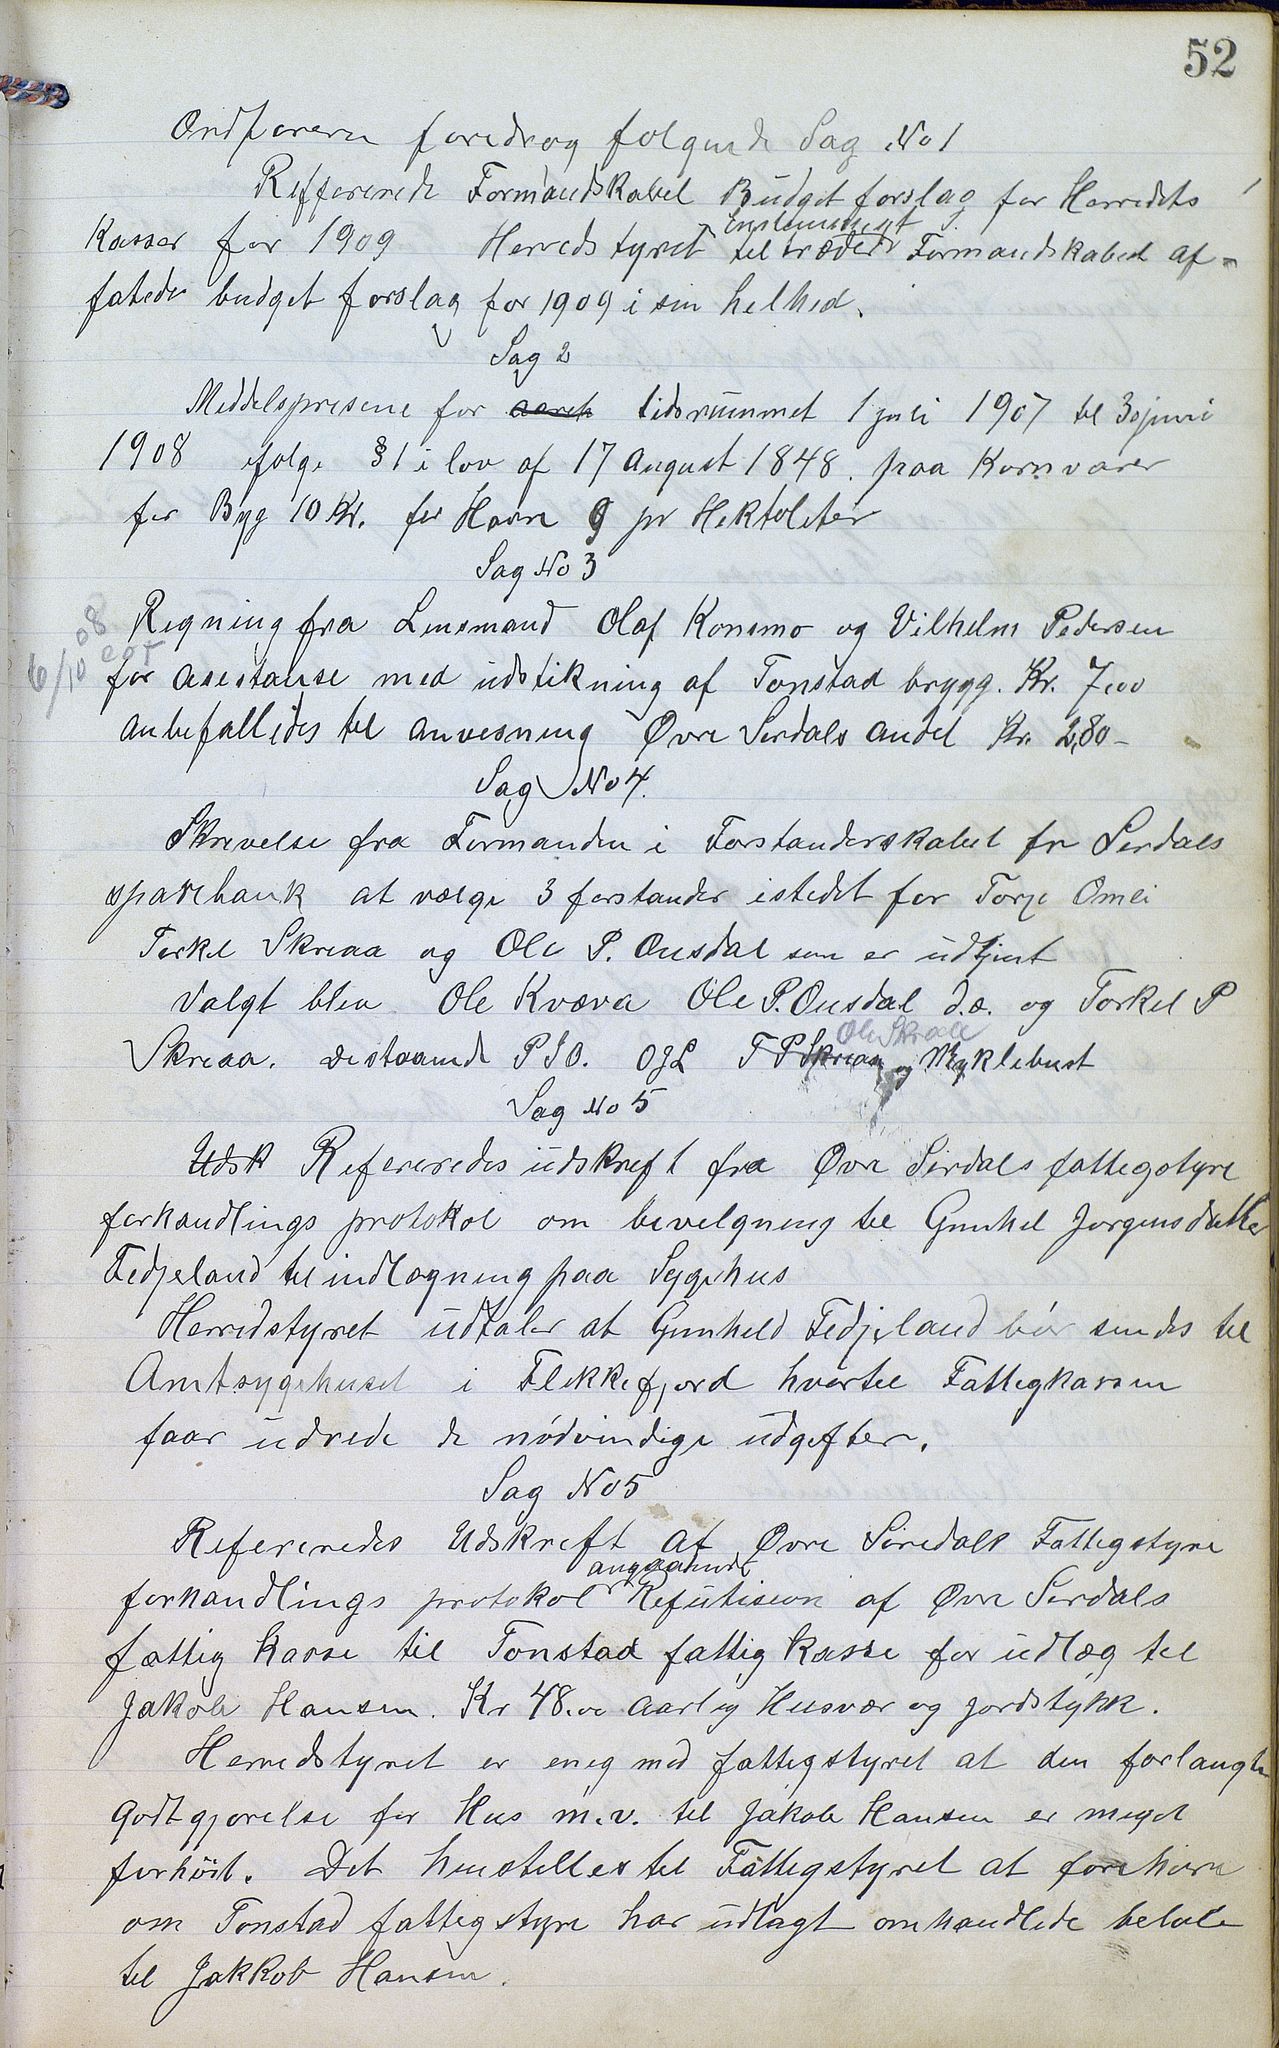 52
Ordføreren foredrog følgende Sag No 1
Refererede Formandskabet Budget forslag for Herredets
Kasser for 1909 Herredstyret enstemmigt til træder Formandskabet af-
fatede budget forslag for 1909 i sin helhed.
Sag 2
Middelsprisene for aaret tidsrummet 1 juli 1907 til 30 juni
1908 ifølge § 1 i lov af 17 August 1848. paa Kornvarer
for Byg 10 Kr. for Havre 9 pr Hektoliter
Sag No 3
Regning fra Lensmand Olaf Konsmo og Vilhelm Pedersen
6/10 08
for asestanse med udstikning af Tonstad brygg. Kr. 7,00
anbefallides til anvisning Øvre Sirdals andel Kr. 2,80-
Sag No 4.
Skrivelse fra Formanden i Forstanderskabet for Sirdals
sparebank at vælge 3 forstander istedet for Torje Omli
Torkel Skreaa og Ole P. Ousdal som er udtjent
Valgt blev Ole Kvæva Ole P. Ousdal d.æ. og Torkel P
Ole Skreaa
Skreaa. Distaaende P S O. O J L T P Skreaa og Myklebust
Sag No 5
Udsk Refereredes udskrift fra Øvre Sirdals fattigstyre
forhandlings protokol om bevilgning til Gunhil Jørgensdatter
Fidjeland til indlægning paa Sygehus
Herredstyret udtaler at Gunhild Fidjeland bør sendes til
Amtsygehuset i Flekkefjord hvortil Fattigkassen
faar udrede de nødvindige udgifter.
Sag No 5
Refereredes Udskrift af Øvre Siredals Fattigstyre
forhandlings protokol angaaende Refutision af Øvre Sirdals
fattig kasse til Tonstad fattig kasse for udlæg til
Jakob Hansen. Kr 48.00 aarlig Husvær og jordstykk.
Herredstyret er enig med fattigstyret at den forlangte
Godtgjørelse for Hus m.v. til Jakob Hansen er meget
forhøit. Det henstilles til Fattigstyret at forehøre
om Tonstad fattigstyre har udlagt omhandlede beløb
til Jakkob Hansen.